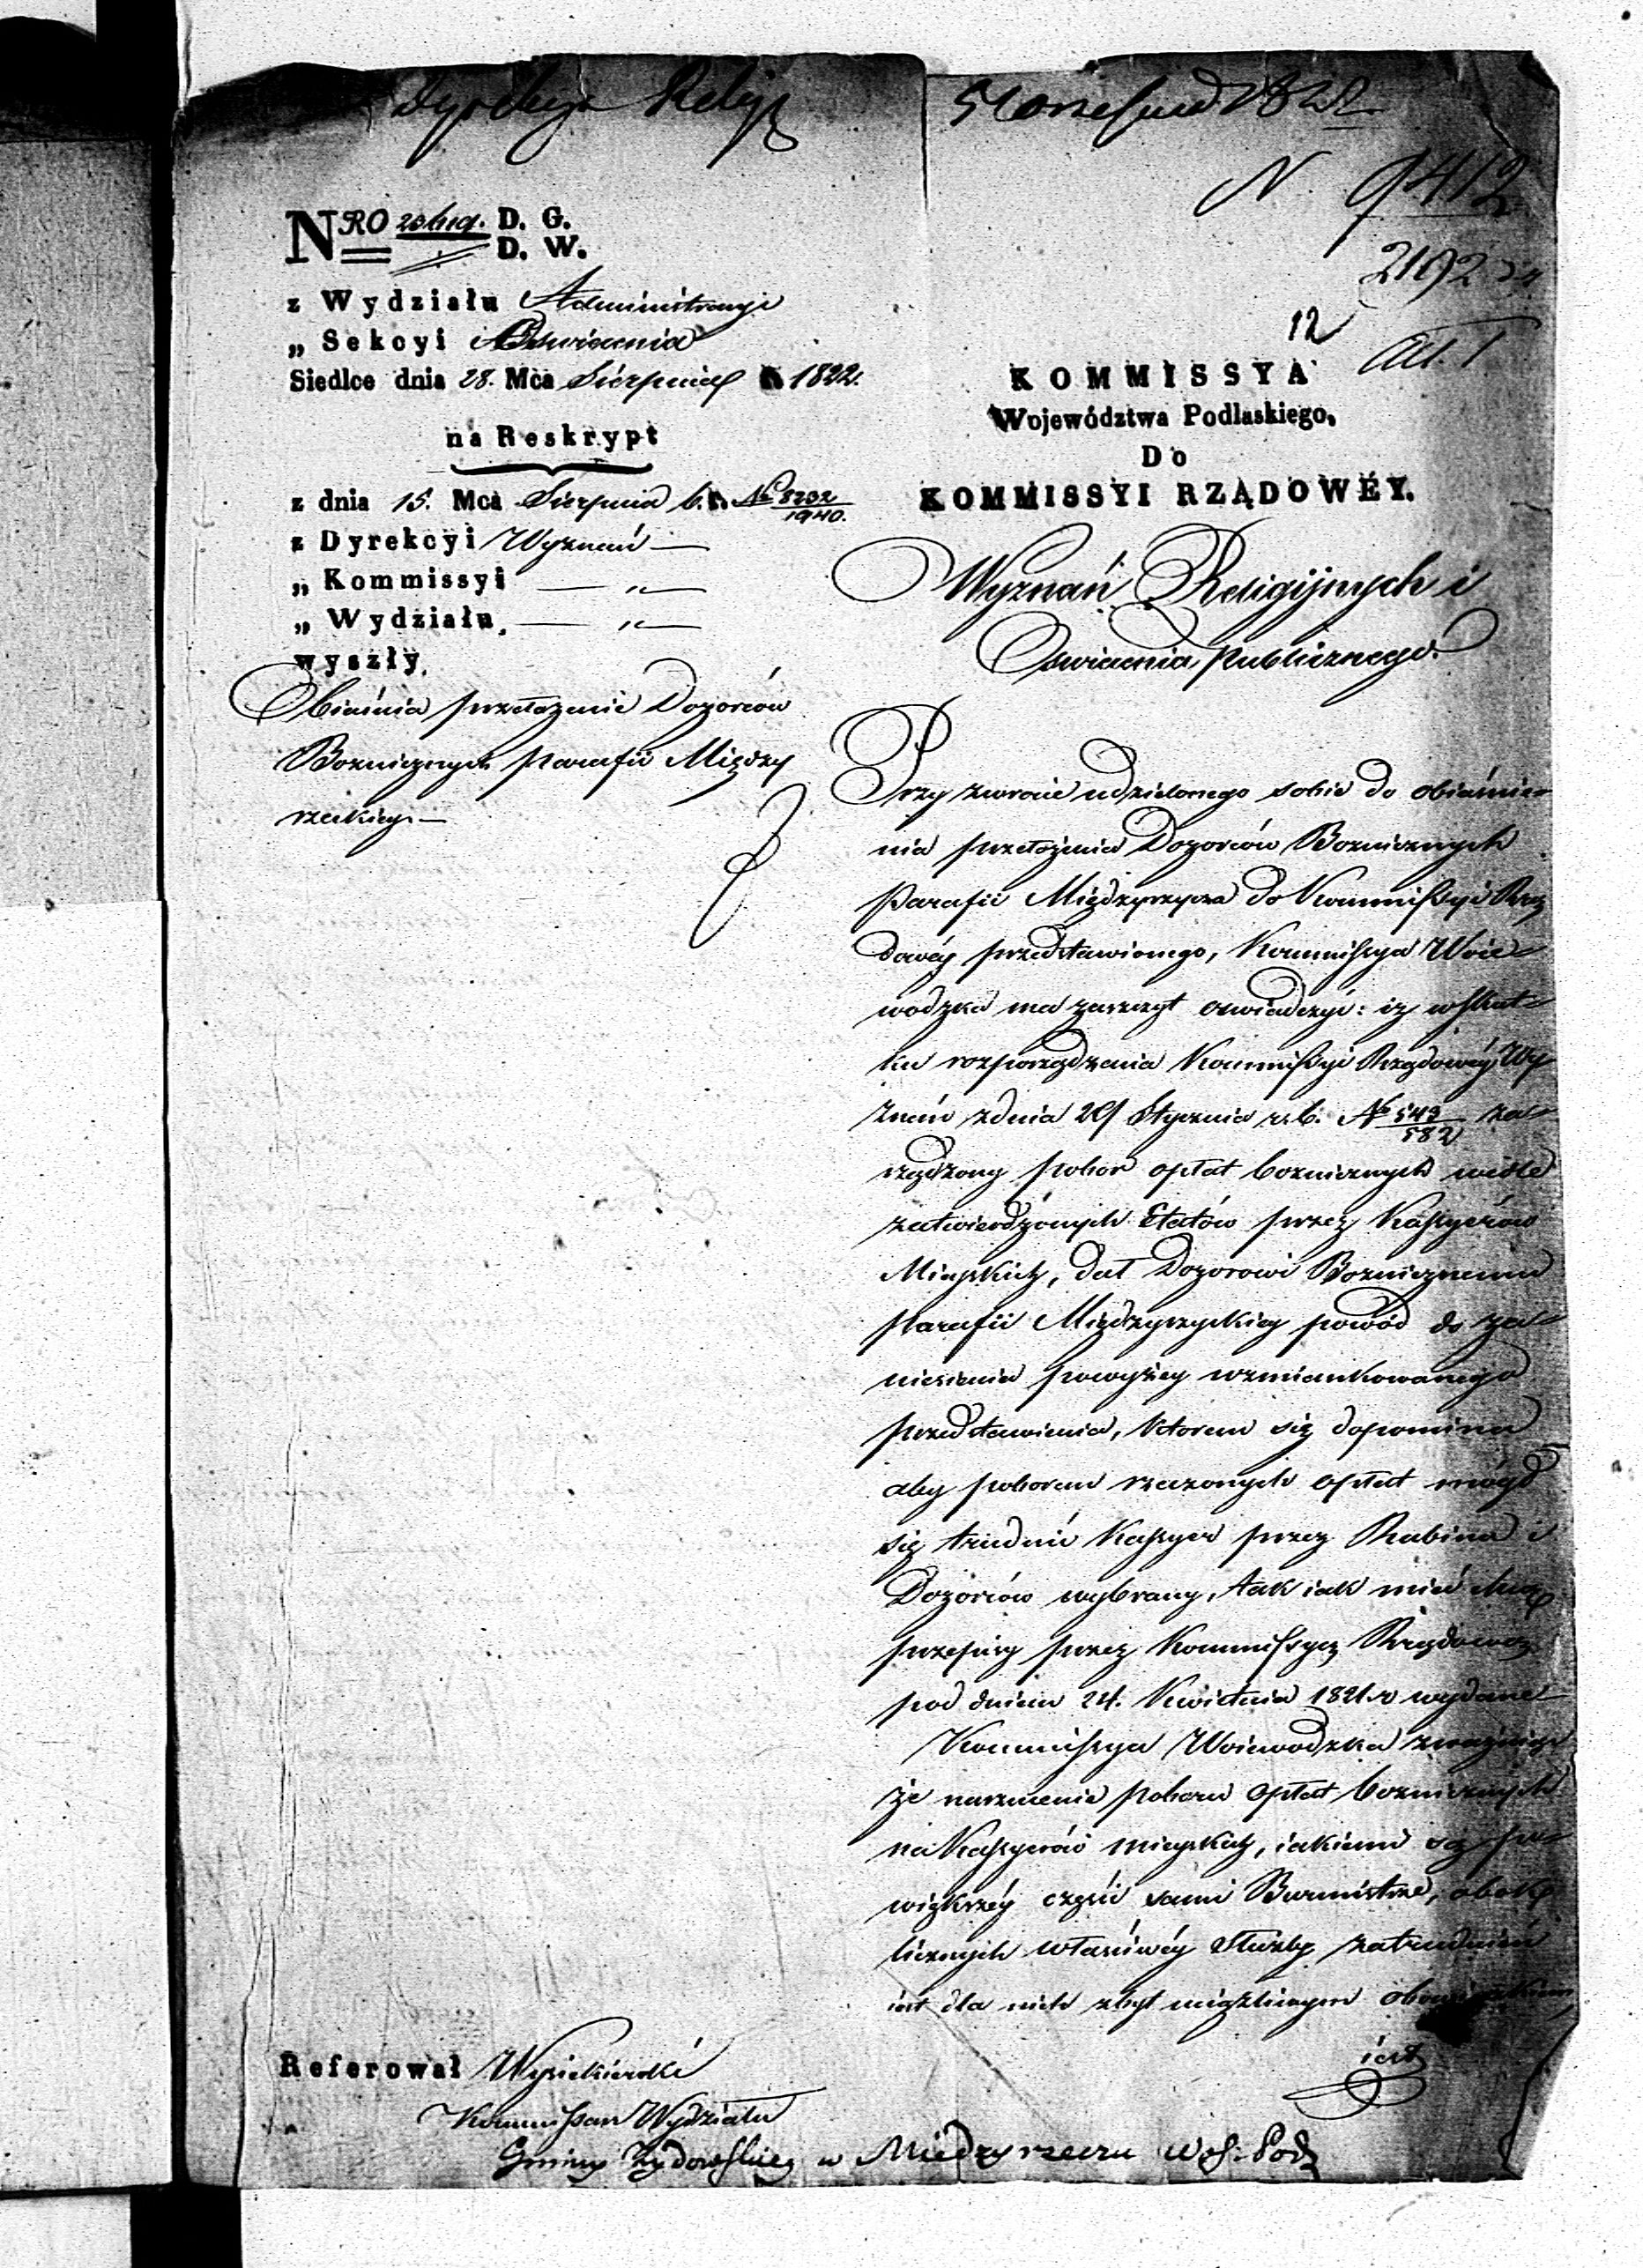 Dyrekcya Religij
5 Wrzesnia 1822
N. 9412
2192
12
NRO D. G.
D. W.
z Wydziału Administracyi
„ Sekcyi Oswiecenia
Siedlce dnia 28. Mca Sierpnia 1822.
na Reskrypt
z dnia 15. Mca Sierpnia b. r. No 8202/1940.
z Dyrekcyi Wyznań —
„ Kommissyi — „ —
„ Wydziału — „ —
wyszły.
Obiaśnia przełożenie Dozorców
Bozniczych parafii Między
rzeckiey —
KOMMISSYA
Województwa Podlaskiego,
Do
KOMMISSYI RZĄDOWÉY.
Wyznań Religijnych i
Oswiecenia publicznego.
Przy zwrocie udzielonego sobie do obiaśnie-
nia przełożenia Dozorców Boznicznych
Parafii Międzyrzycza do Kommissyi Rzą
dowéy przedstawionego, Kommissya Woie-
wodzka ma zaszczyt oswiadczyć: iż w skut-
ku rozporządzenia Kommissyi Rządowéy Wy
znań z dnia 29 Stycznia r. b. No 543/582 za-
rządzony pobor opłat bozniczych wedle
zatwierdzonych Etatów przez Kassyerów
Mieyskich, dał Dozorowi Boznicznemu
parafii Międzyrzyckiey powód do za-
niesienia powyżey wzmiankowanego
przedstawienia, ktorem się dopomina
aby poborem rzeczonych opłat mógł
się trudnić Kassyer przez Rabina i
Dozorców wybrany, tak iak mieć chcą
przepisy przez Kommissyą Rządową
pod dniem 24. Kwietnia 1821. r wydane
Kommissya Woiewodzka zważaiąc
że narzucenie poboru opłat bozniczych
na Kassyerów mieyskich, iakiemi są po
większéy części sami Burmistrze, obok
licznych właściwéy służby zatrudnień
iest dla nich zbyt uciążliwym obowiązkiem
iest
Referował Wysiekierski
Kommissarz Wydziału
Gminy Żydowskiey w Miedzyrzeczu Woj: Podl